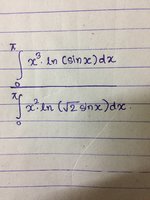 ∫₀^π x³. ln (sinx)dx
∫₀^π x². ln (√2 sinx)dx.